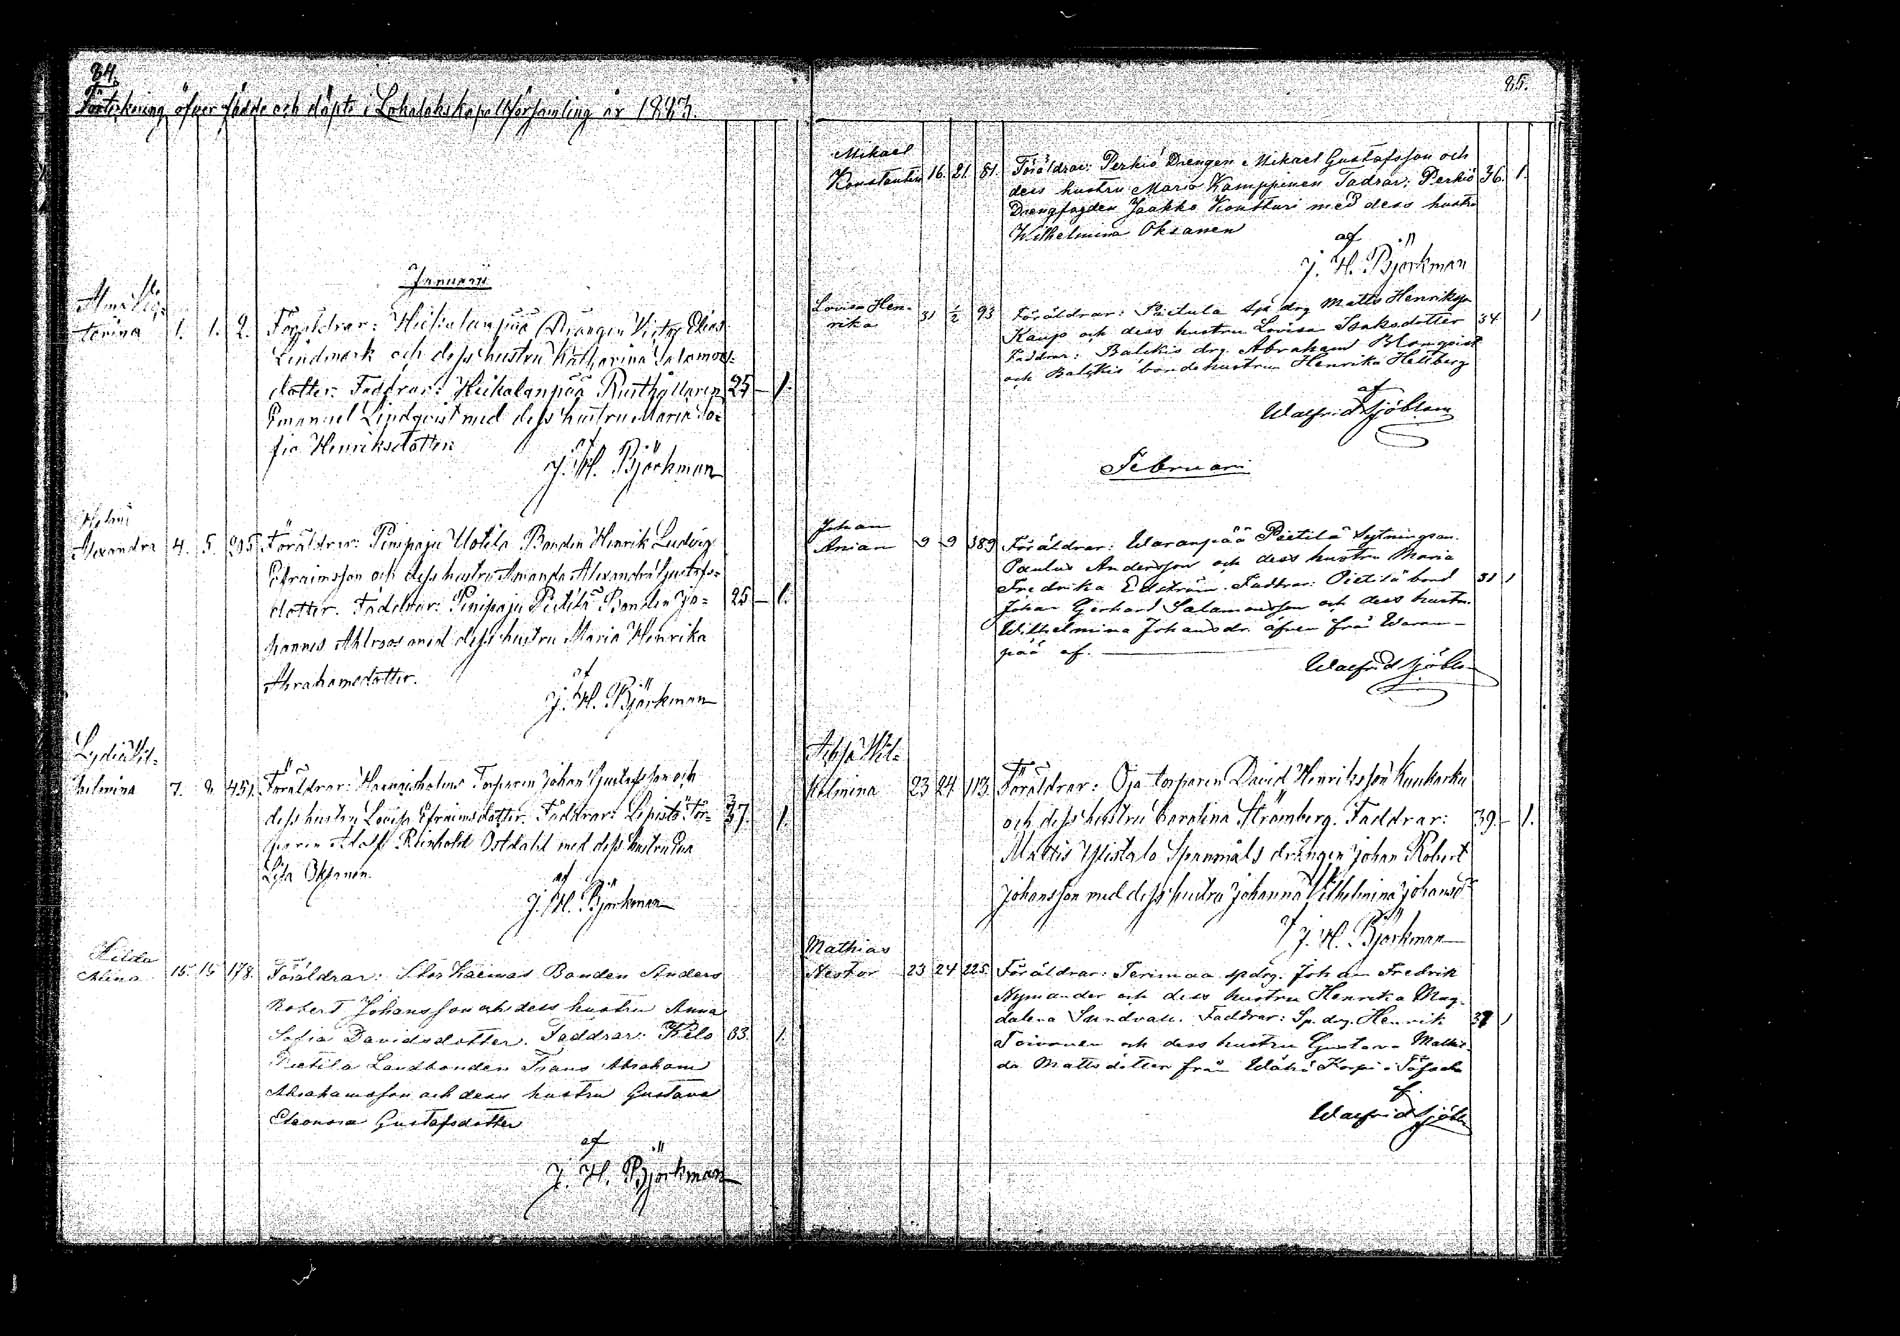 84.
Förteckning öfver födde och döpte i Lokalaks kapellförsamling år 1883.
Januarii
Alma
tarina 1. 1. 2. Föräldrar: Drängen Victor Elias
Lindmark och dess hustru Katharina Salamons-
dotter. Faddrar: Heikolanpää Rusthållaren 25 – 1.
Emanuel Lindqvist med dess hustru Maria So-
fia Henriksdotter.
af
J. H. Björkman
Alexandra 4. 5. 205. Föräldrar: Pinipaju Uotila Bonden Henrik Ludvig
Efraimsson och dess hustru Amanda Alexandra Gustafs-
dotter. Faddrar: Pinipaju Pietilä Bonden Jo- 25 – 1.
hannes Ahlroos med dess hustru Maria Henrika
Abrahamsdotter.
af
J. H. Björkman
Lydia Vil-
helmina 7. 8. 451. Föräldrar: Torparen Johan Gustafsson och
dess hustru Lovisa Efraimsdotter. Faddrar: Lepistö Tor- 37. 1.
paren Adolf Reinhold Östdahl med dess hustru Eva
Lisa Oksanen.
af
J. H. Björkman
Hilda
Maria 15. 15 178. Föräldrar: Stor Kaemas Bonden Anders
Robert Johansson och dess hustru Anna
Sofia Davidsdotter. Faddrar: Kelo 33. 1.
Pietilä Landbonden Frans Abraham
Abrahamsson och dess hustru Gustava
Eleonora Gustafsdotter
af
J. H. Björkman
85.
Mikael
Konstantin 16. 21. 81. Föräldrar: Perkiö Drengen Mikael Gustafsson och
dess hustru Maria Kamppinen Fadrar: Perkiö 36. 1.
Drengfogden Jaakko Kontturi med dess hustru
Wilhelmina Oksanen
af
J. H. Björkman
Lovisa Hen-
rika 31 ½ 93 Föräldrar: Pietula drg Matts Henriksson
Kaup och dess hustru Lovisa Isaksdotter 34 1
Faddrar: Balckis drg. Abraham Blomqvist
och Balckis bondehustrun Henrika Hellberg
af
Walfrid Sjöblom
Februari
Johan
Anian 9 9 389 Föräldrar: Waranpää Pietilä Sytningsm.
Paulus Andersson och dess hustru Maria
Fredrika Edström. Faddrar: Pietilä bond 31 1
Johan Gerhard Salamonsson och dess hustru
Wilhelmina Johansdr. äfven frå Waran-
pää af.
Walfrid Sjöblom
Wil-
helmina 23 24 113. Föräldrar: Oja torparen David Henriksson Kuukarku
och dess hustru Carolina Strömberg. Faddrar: 39. – 1.
Mattis Ylistalo Spannmåls drängen Johan Robert
Johansson med dess hustru Johanna Vilhelmina Johansdr
af J. H. Björkman
Mathias
Nestor 23 24 225. Föräldrar: Terimaa sp drg. Johan Fredrik
Nymander och dess hustru Henrika Mag-
dalena Sandvall. Faddrar: Sp. drg. Henrik 37 1
Toivonen och dess hustru Gustava Mathil-
da Mattsdotter från Wähä Korpi i Töfsala
af
Walfrid Sjöblom